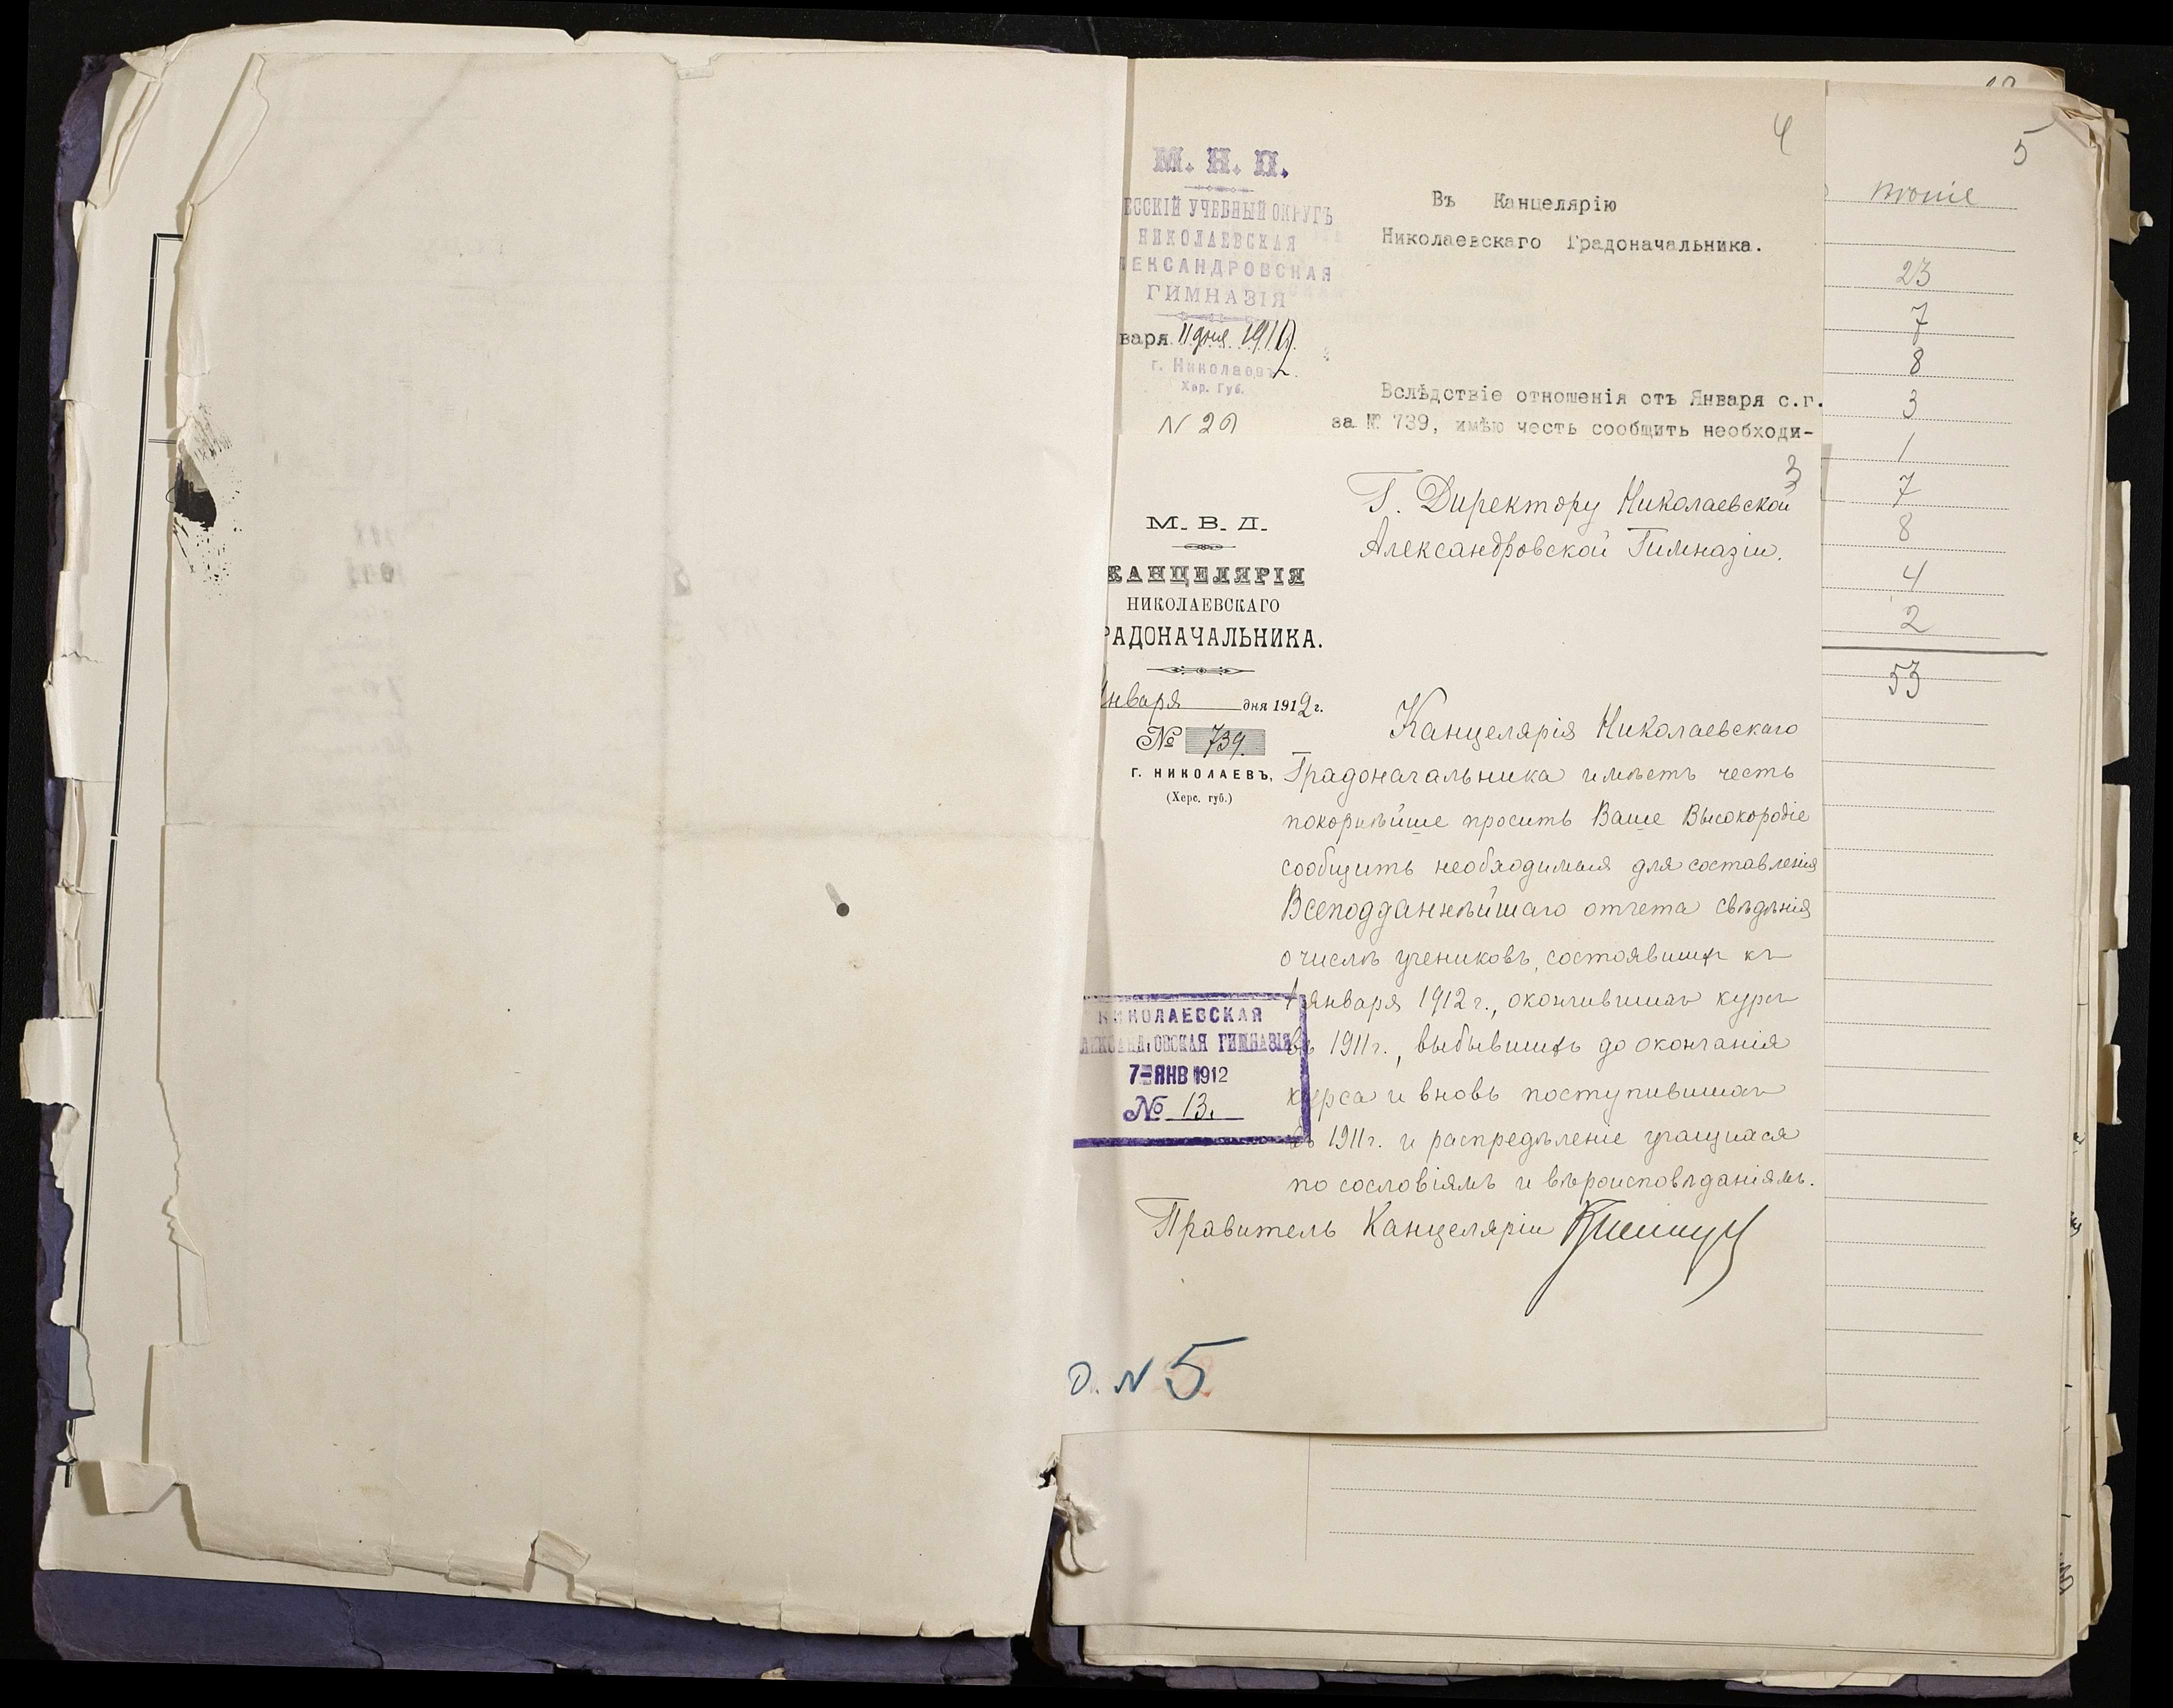 4
М. Н. П.
ЕССКІЙ УЧЕБНЫЙ ОКРУГЪ
НИКОЛАЕВСКАЯ
ЛЕКСАНДРОВСКАЯ
ГИМНАЗІЯ
варя 11 дня 191
г. Николаевъ.
Хер. Губ.
Въ Канцелярію
Николаевскаго Градоначальника.
Вслѣдствіе отношенія отъ Января с.г.
за № 739, имѣю честь сообщить необходи-
3
М. В. Д.
КАНЦЕЛЯРІЯ
НИКОЛАЕВСКАГО
РАДОНАЧАЛЬНИКА.
Января дня 1912 г.
№ 739.
Г. НИКОЛАЕВЪ,
(Херс. губ.)
Г. Директору Николаевской
Александровской Гимназіи.
Канцелярія Николаевскаго
Градоначальника имѣетъ честь
покорнѣйше просить Ваше Высокородіе
сообщить необходимыя для составленія
Всеподданнѣйшаго отчета свѣдѣнія
о числѣ учениковъ, состоявшихъ къ
1 января 1912 г., окончившихъ курсъ
въ 1911 г., выбывшихъ до окончанія
курса и вновь поступившихъ
въ 1911 г. и распредѣленіе учащихся
по сословіямъ и вѣроисповѣданіямъ.
Правитель Канцеляріи
НИКОЛАЕВСКАЯ
АЛЕКСАНДРОВСКАЯ ГИМНАЗІЯ
7-ЯНВ 1912
№ 13.
О. N 5
5
23
7
8
3
1
7
8
4
2
53